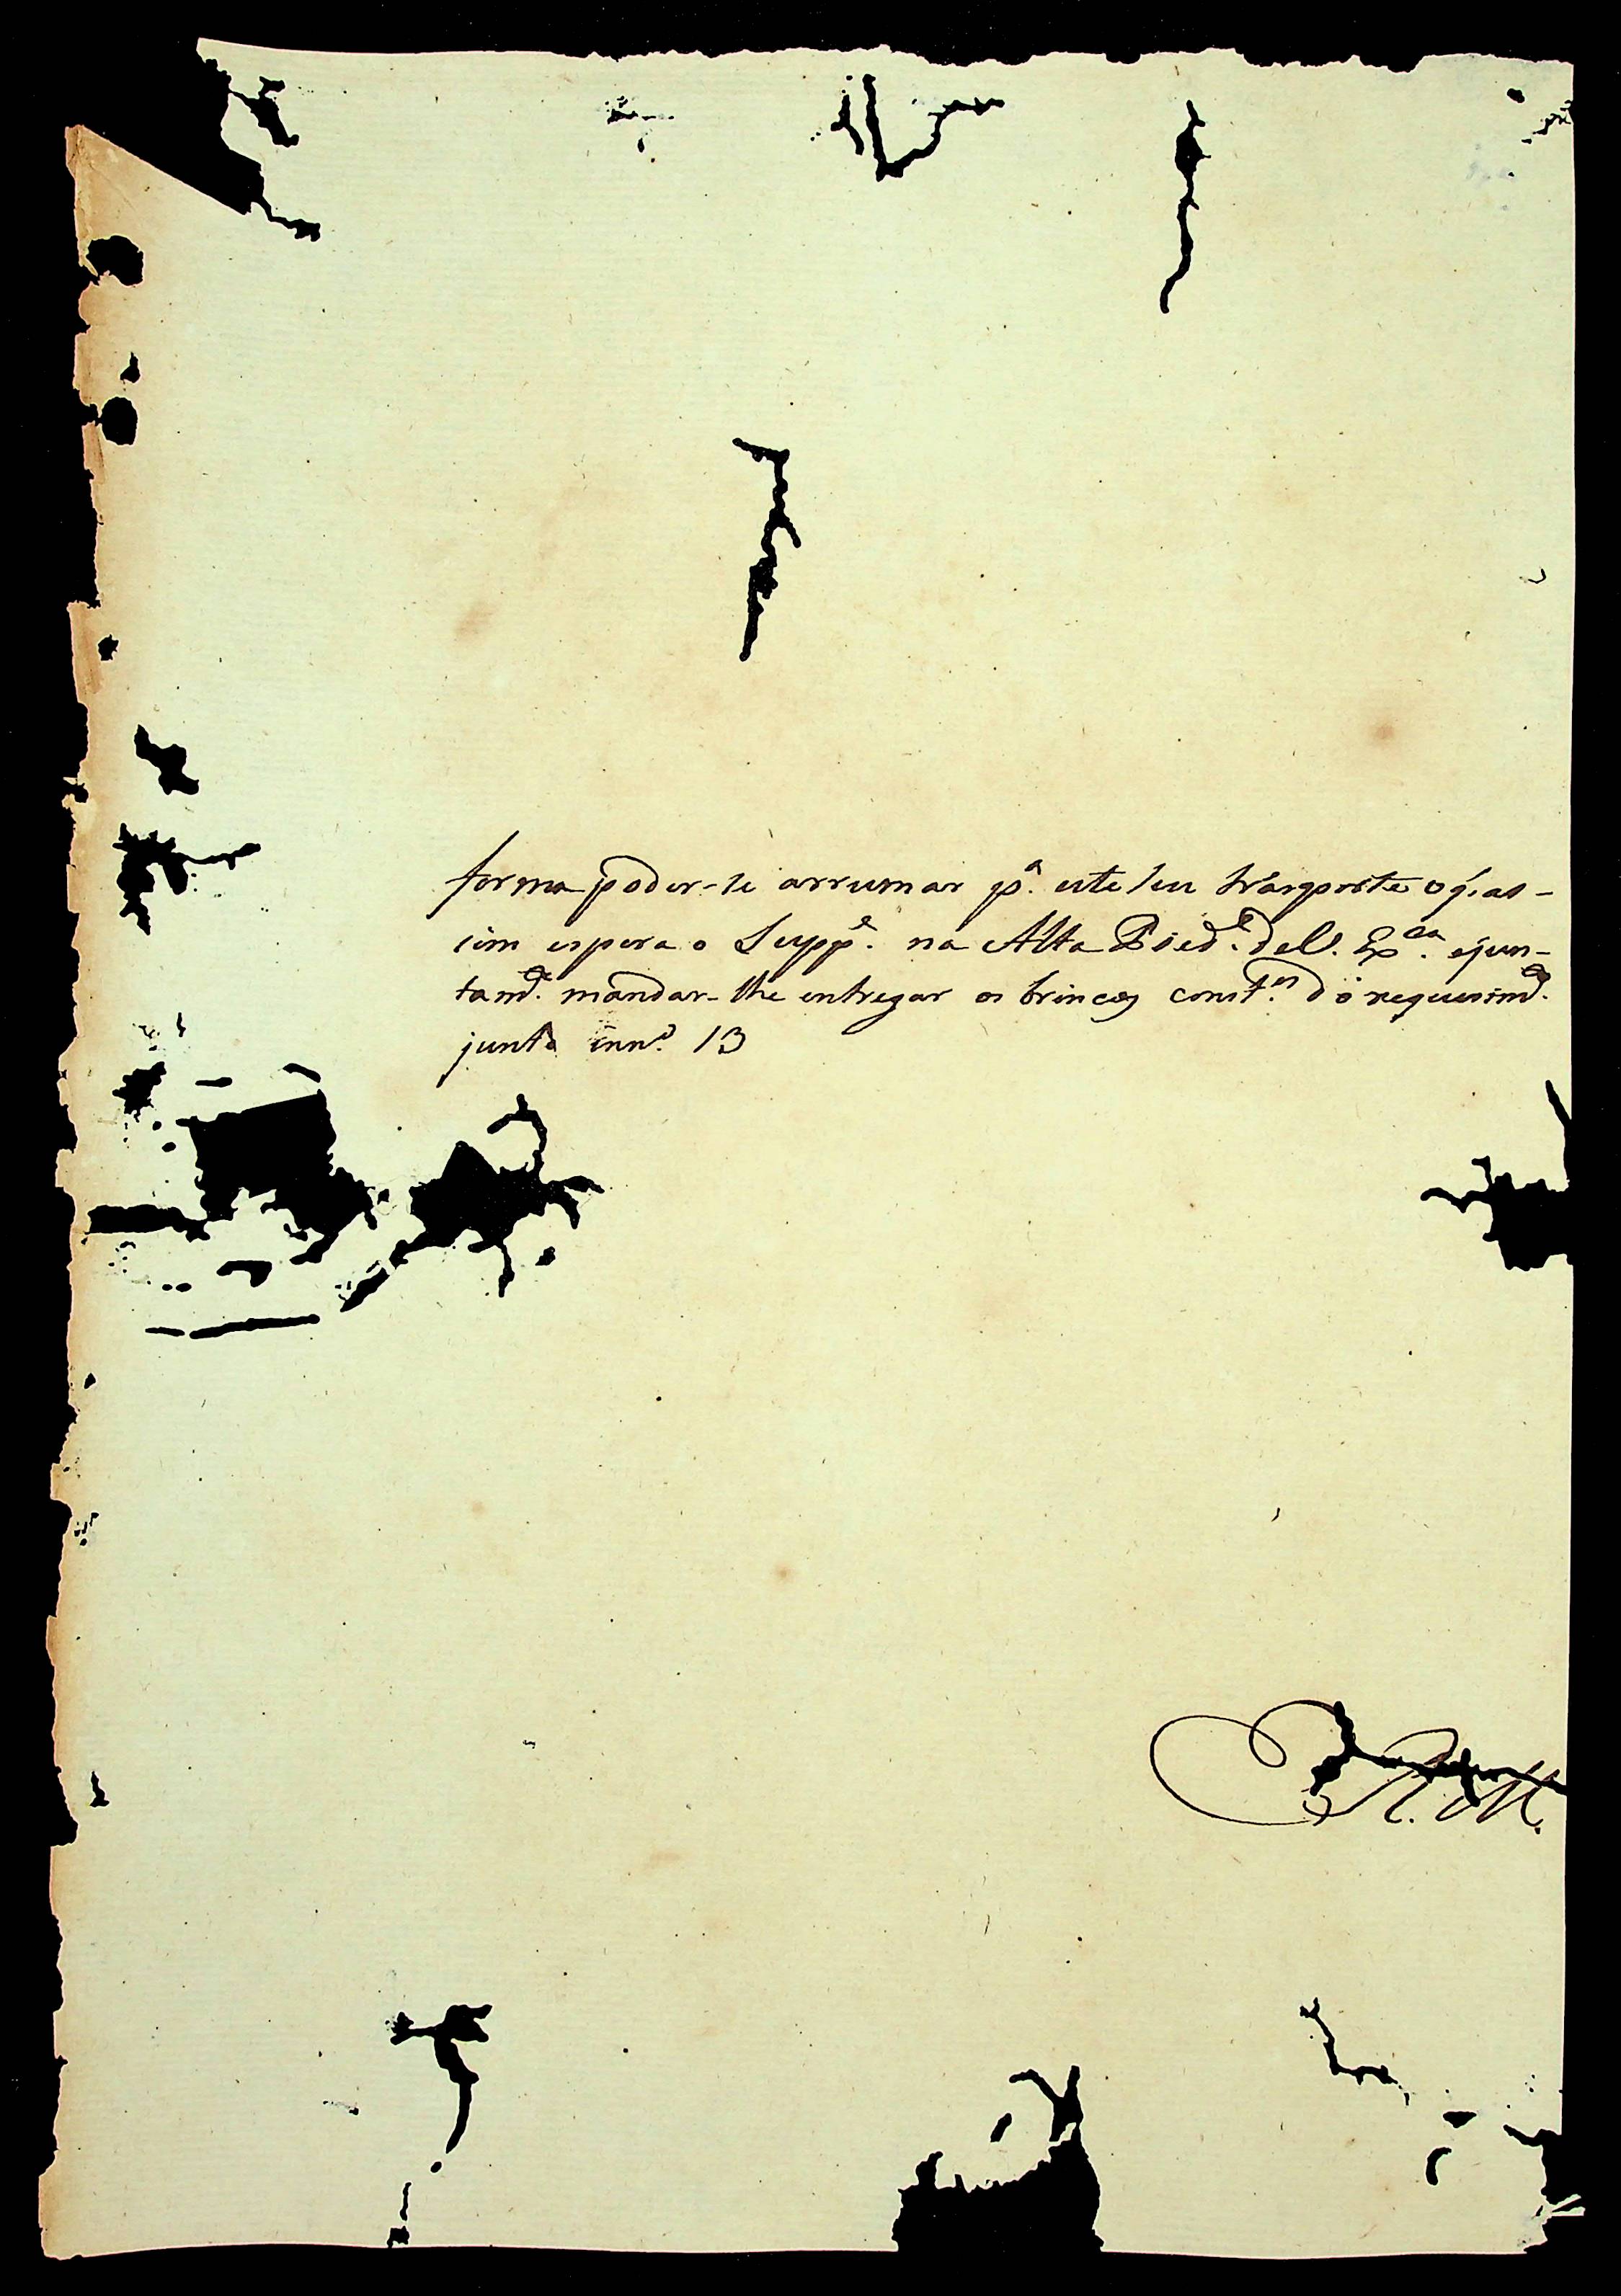 forma poder-se arrumar pª. este seu trãsporte o q̃. as-
sim espera o Suppᵉ. na Alta Piedᵉ. de V. Exᶜⁱᵃ. e jun-
tamᵉ. mandar-lhe entregar os brincos constᵉˢ. do requerimᵗᵒ.
junto em nº. 13
E. R. M.